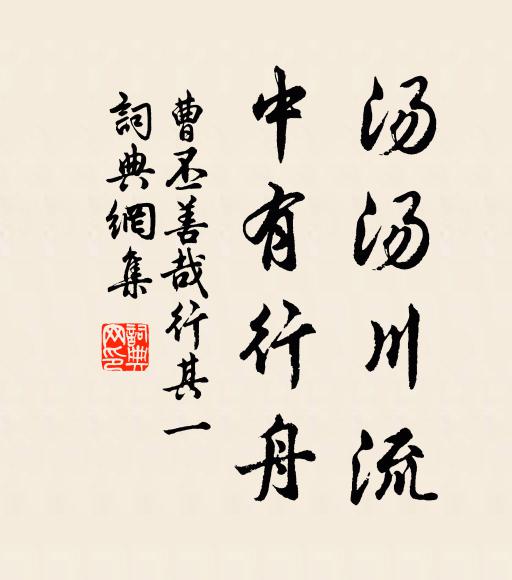 汤汤川流
中有行舟
曹丕善哉行其一
詞典網集
詞典
网印